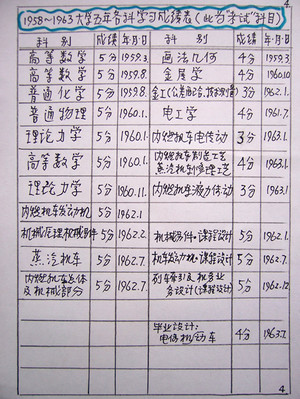 1958~1963大学五年各科学习成绩表(此为"考试"科目)
科 别 成绩 年.月.日 科 别 成绩 年.月.日
高等数学 5分 1959.3. 画法几何 4分 1959.3
高等数学 5分 1959.8. 金属学 4分 1960.10
普通化学 5分 1959.8. 金工(公差配合,技术测量) 3分 1962.1.
普通物理 5分 1960.1. 电工学 4分 1961.7.
理论力学 5分 1960.1. 内燃机车电传动 3分 1963.1.
高等数学 5分 1960.8. 内燃机车制造工艺 蒸汽机车修理工艺 4分 1963.1.
理论力学 5分 1960.11. 内燃机车液力传动 3分 1963.1
内燃机车发动机 5分 1962.1
机械原理机械零件 5分 1962.2. 机械零件·课程设计 5分 1962.1.
蒸汽机车 5分 1962.7. 机车发动机·课程设计 5分 1962.7.
内燃机车总体及机械部分 5分 1962.7. 列车牵引及机务业务设计(课程设计) 5分 1962.12
毕业设计:
电传动机车 4分 1963.7.
4.